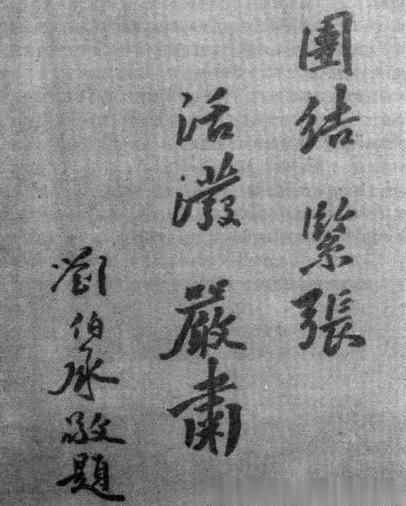 團結 緊張
活潑 嚴肅
劉伯承敬題